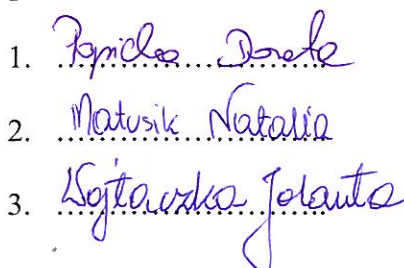 1. Papicka Dorota
2. Matusik Natalia
3. Wojtaczka Jolanta